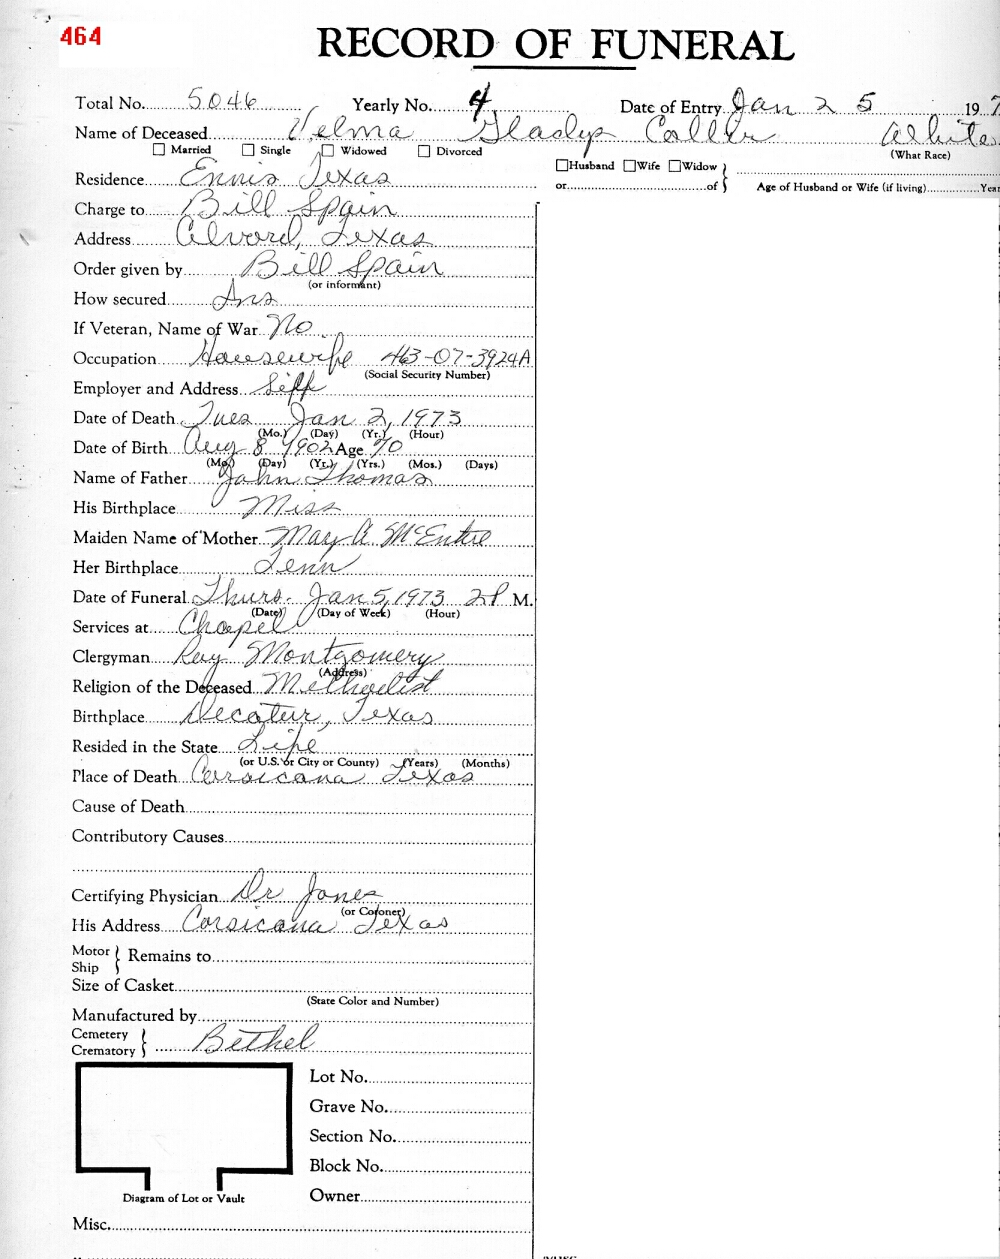 464
RECORD OF FUNERAL
Total No. 5046 Yearly No. 4 Date of Entry Jan 2 5 197
Name of Deceased Velma Gladys White
(What Race)
Married Single Widowed Divorced
Husband Wife Widow
or of Age of Husband or Wife (if living) Year
Residence Ennis Texas
Charge to Bill Spain
Address Alvord, Texas
Order given by Bill Spain
(or informant)
How secured Ins
If Veteran, Name of War No
Occupation Housewife 463-07-3924A
(Social Security Number)
Employer and Address Self
Date of Death Tues Jan 2, 1973
(Mo.) (Day) (Yr.) (Hour)
Date of Birth Aug 8 1902 Age 70
(Mo.) (Day) (Yr.) (Yrs.) (Mos.) (Days)
Name of Father John Thomas
His Birthplace Miss
Maiden Name of Mother May A McEntire
Her Birthplace Tenn
Date of Funeral Thurs. Jan 5, 1973 2 P M.
(Date) (Day of Week) (Hour)
Services at Chapel
Clergyman Ray Montgomery
(Address)
Religion of the Deceased Methodist
Birthplace Decatur, Texas
Resided in the State Life
(or U.S. or City or County) (Years) (Months)
Place of Death Corsicana Texas
Cause of Death
Contributory Causes
Certifying Physician Dr Jones
(or Coroner)
His Address Corsicana Texas
Motor Ship Remains to
Size of Casket
(State Color and Number)
Manufactured by
Cemetery Crematory Bethel
Lot No.
Grave No.
Section No.
Block No.
Owner
Diagram of Lot or Vault
Misc.